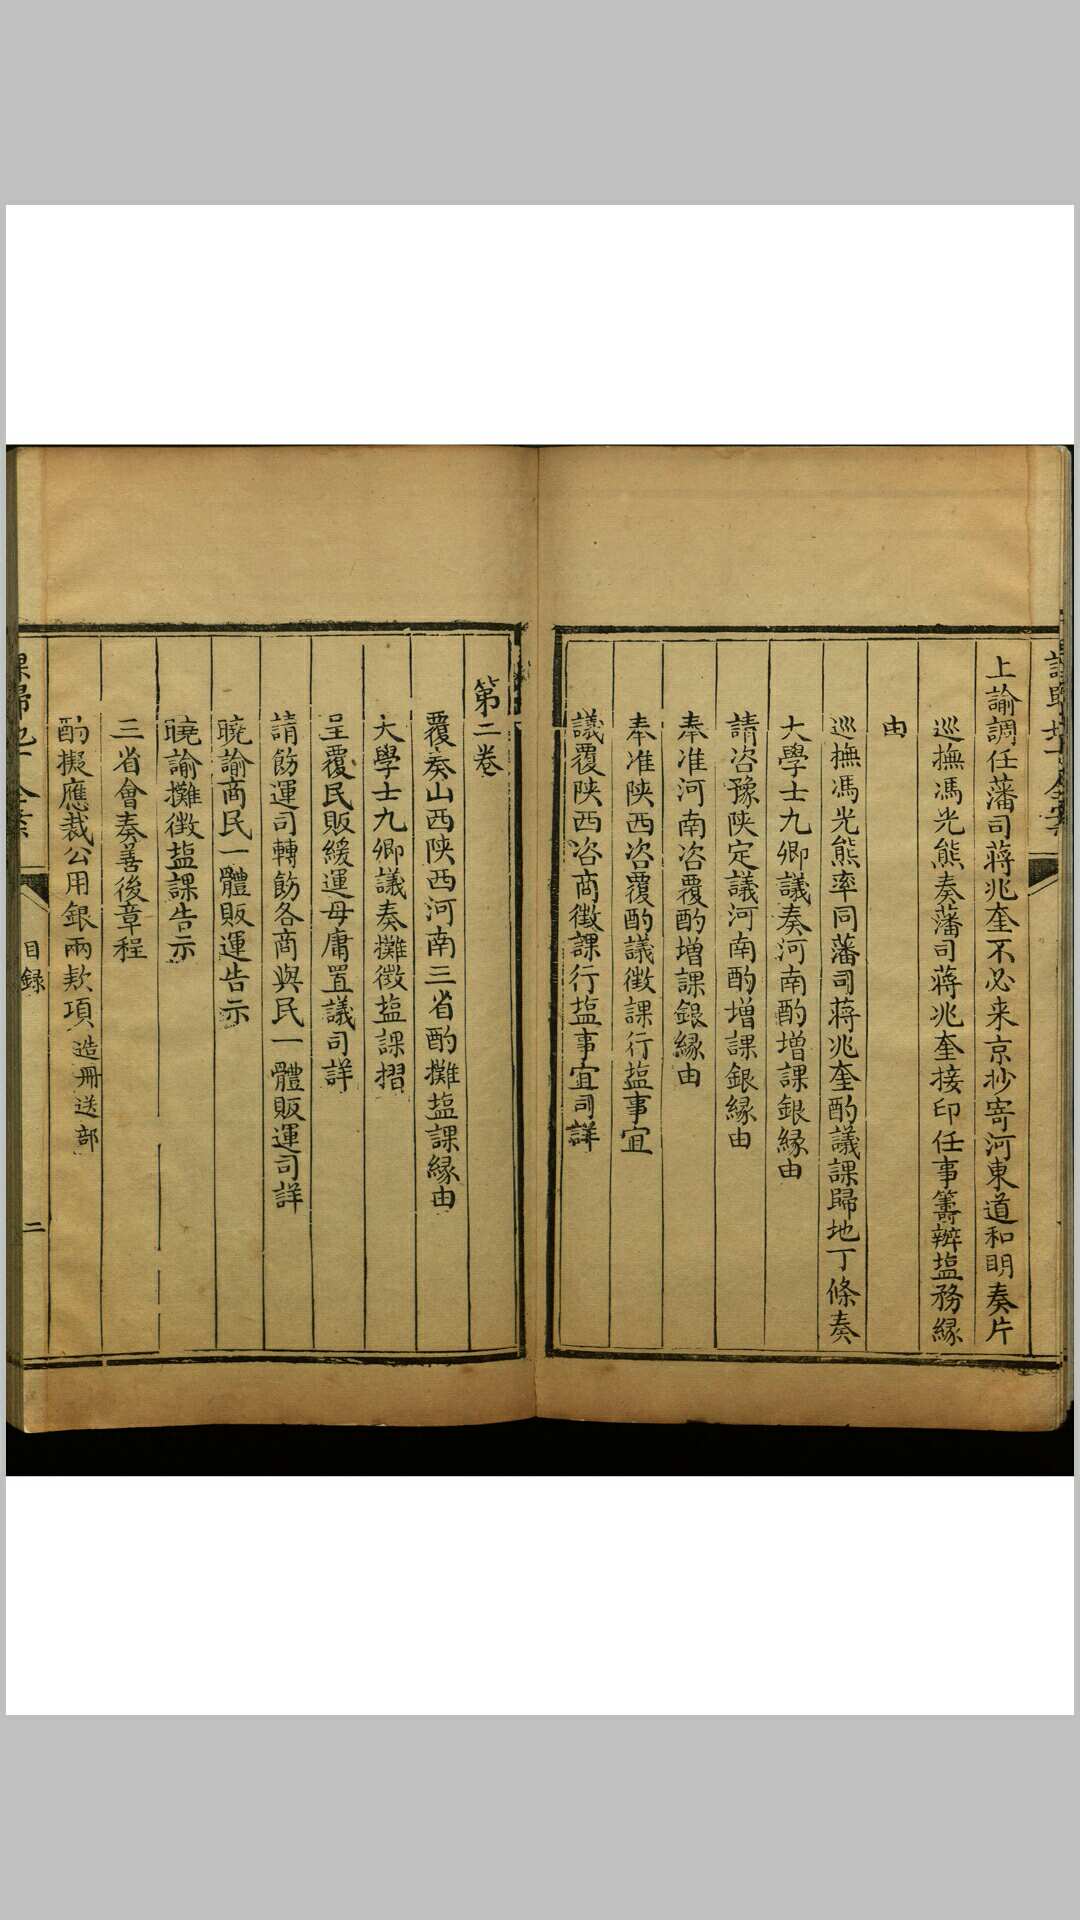 上諭調任藩司蔣兆奎不必来京抄寄河東道和明奏片
巡撫馮光熊奏藩司蔣兆奎接印任事籌辦塩務緣
由
巡撫馮光熊率同藩司蔣兆奎酌議課歸地丁條奏
大學士九卿議奏河南酌增課銀緣由
請咨豫陕定議河南酌增課銀緣由
奉准河南咨覆酌增課銀緣由
奉准陕西咨覆酌議徴課行塩事宜
議覆陕西咨商徴課行塩事宜司詳
第二卷
覆奏山西陕西河南三省酌攤塩課緣由
大學士九卿議奏攤徴塩課摺
呈覆民販緩運毋庸置議司詳
請飭運司轉飭各商與民一體販運司詳
曉諭商民一體販運告示
曉諭攤徴塩課告示
三省會奏善後章程
酌擬應裁公用銀兩欵項造冊送部
課歸地丁全案
目録
二